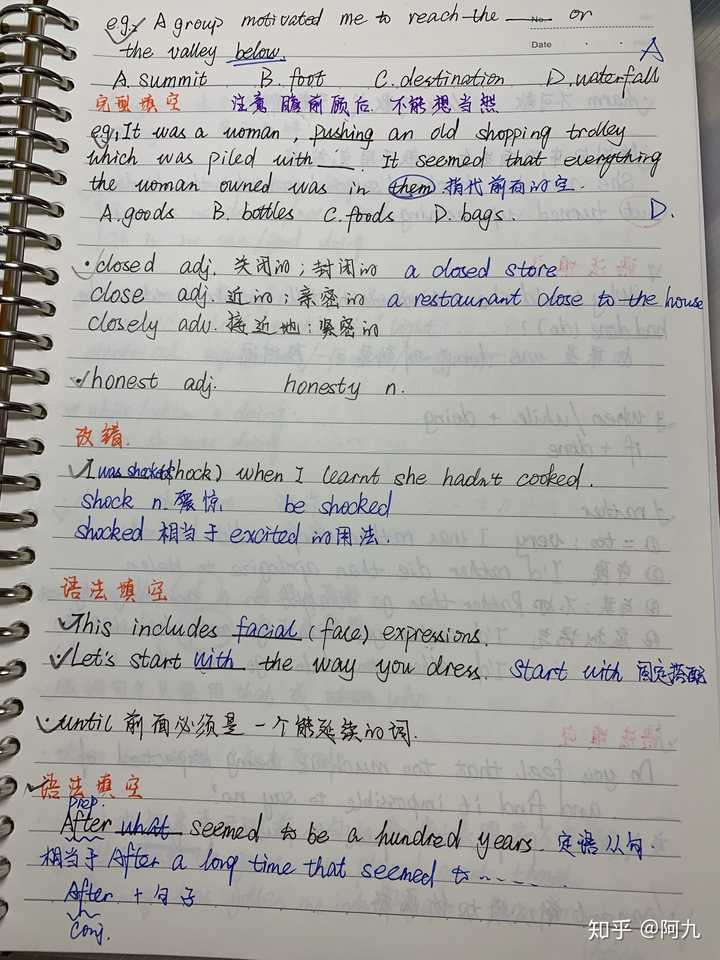 e.g.: A group motivated me to reach the ___ on
No.
the valley below.
Date
A
A. summit B. foot C. destination D. waterfall
完型填空 注意瞻前顾后 不能想当然
eg: It was a woman, pushing an old shopping trolley
which was piled with __. It seemed that everything
the woman owned was in them 指代前面的空.
A. goods B. bottles C. foods D. bags. D.
closed adj. 关闭的；封闭的 a closed store
close adj. 近的；亲密的 a restaurant close to the house
closely adv. 接近地；紧密的
honest adj. honesty n.
改错.
I was shocked (shock) when I learnt she hadn't cooked.
shock n. 震惊 be shocked
shocked 相当于 excited 的用法.
语法填空
This includes facial (face) expressions.
Let's start with the way you dress. start with 固定搭配
until 前面必须是一个能延续的词.
语法填空
prep.
After what seemed to be a hundred years. 定语从句.
相当于 After a long time that seemed to ......
After + 句子
conj.
知乎 @阿九